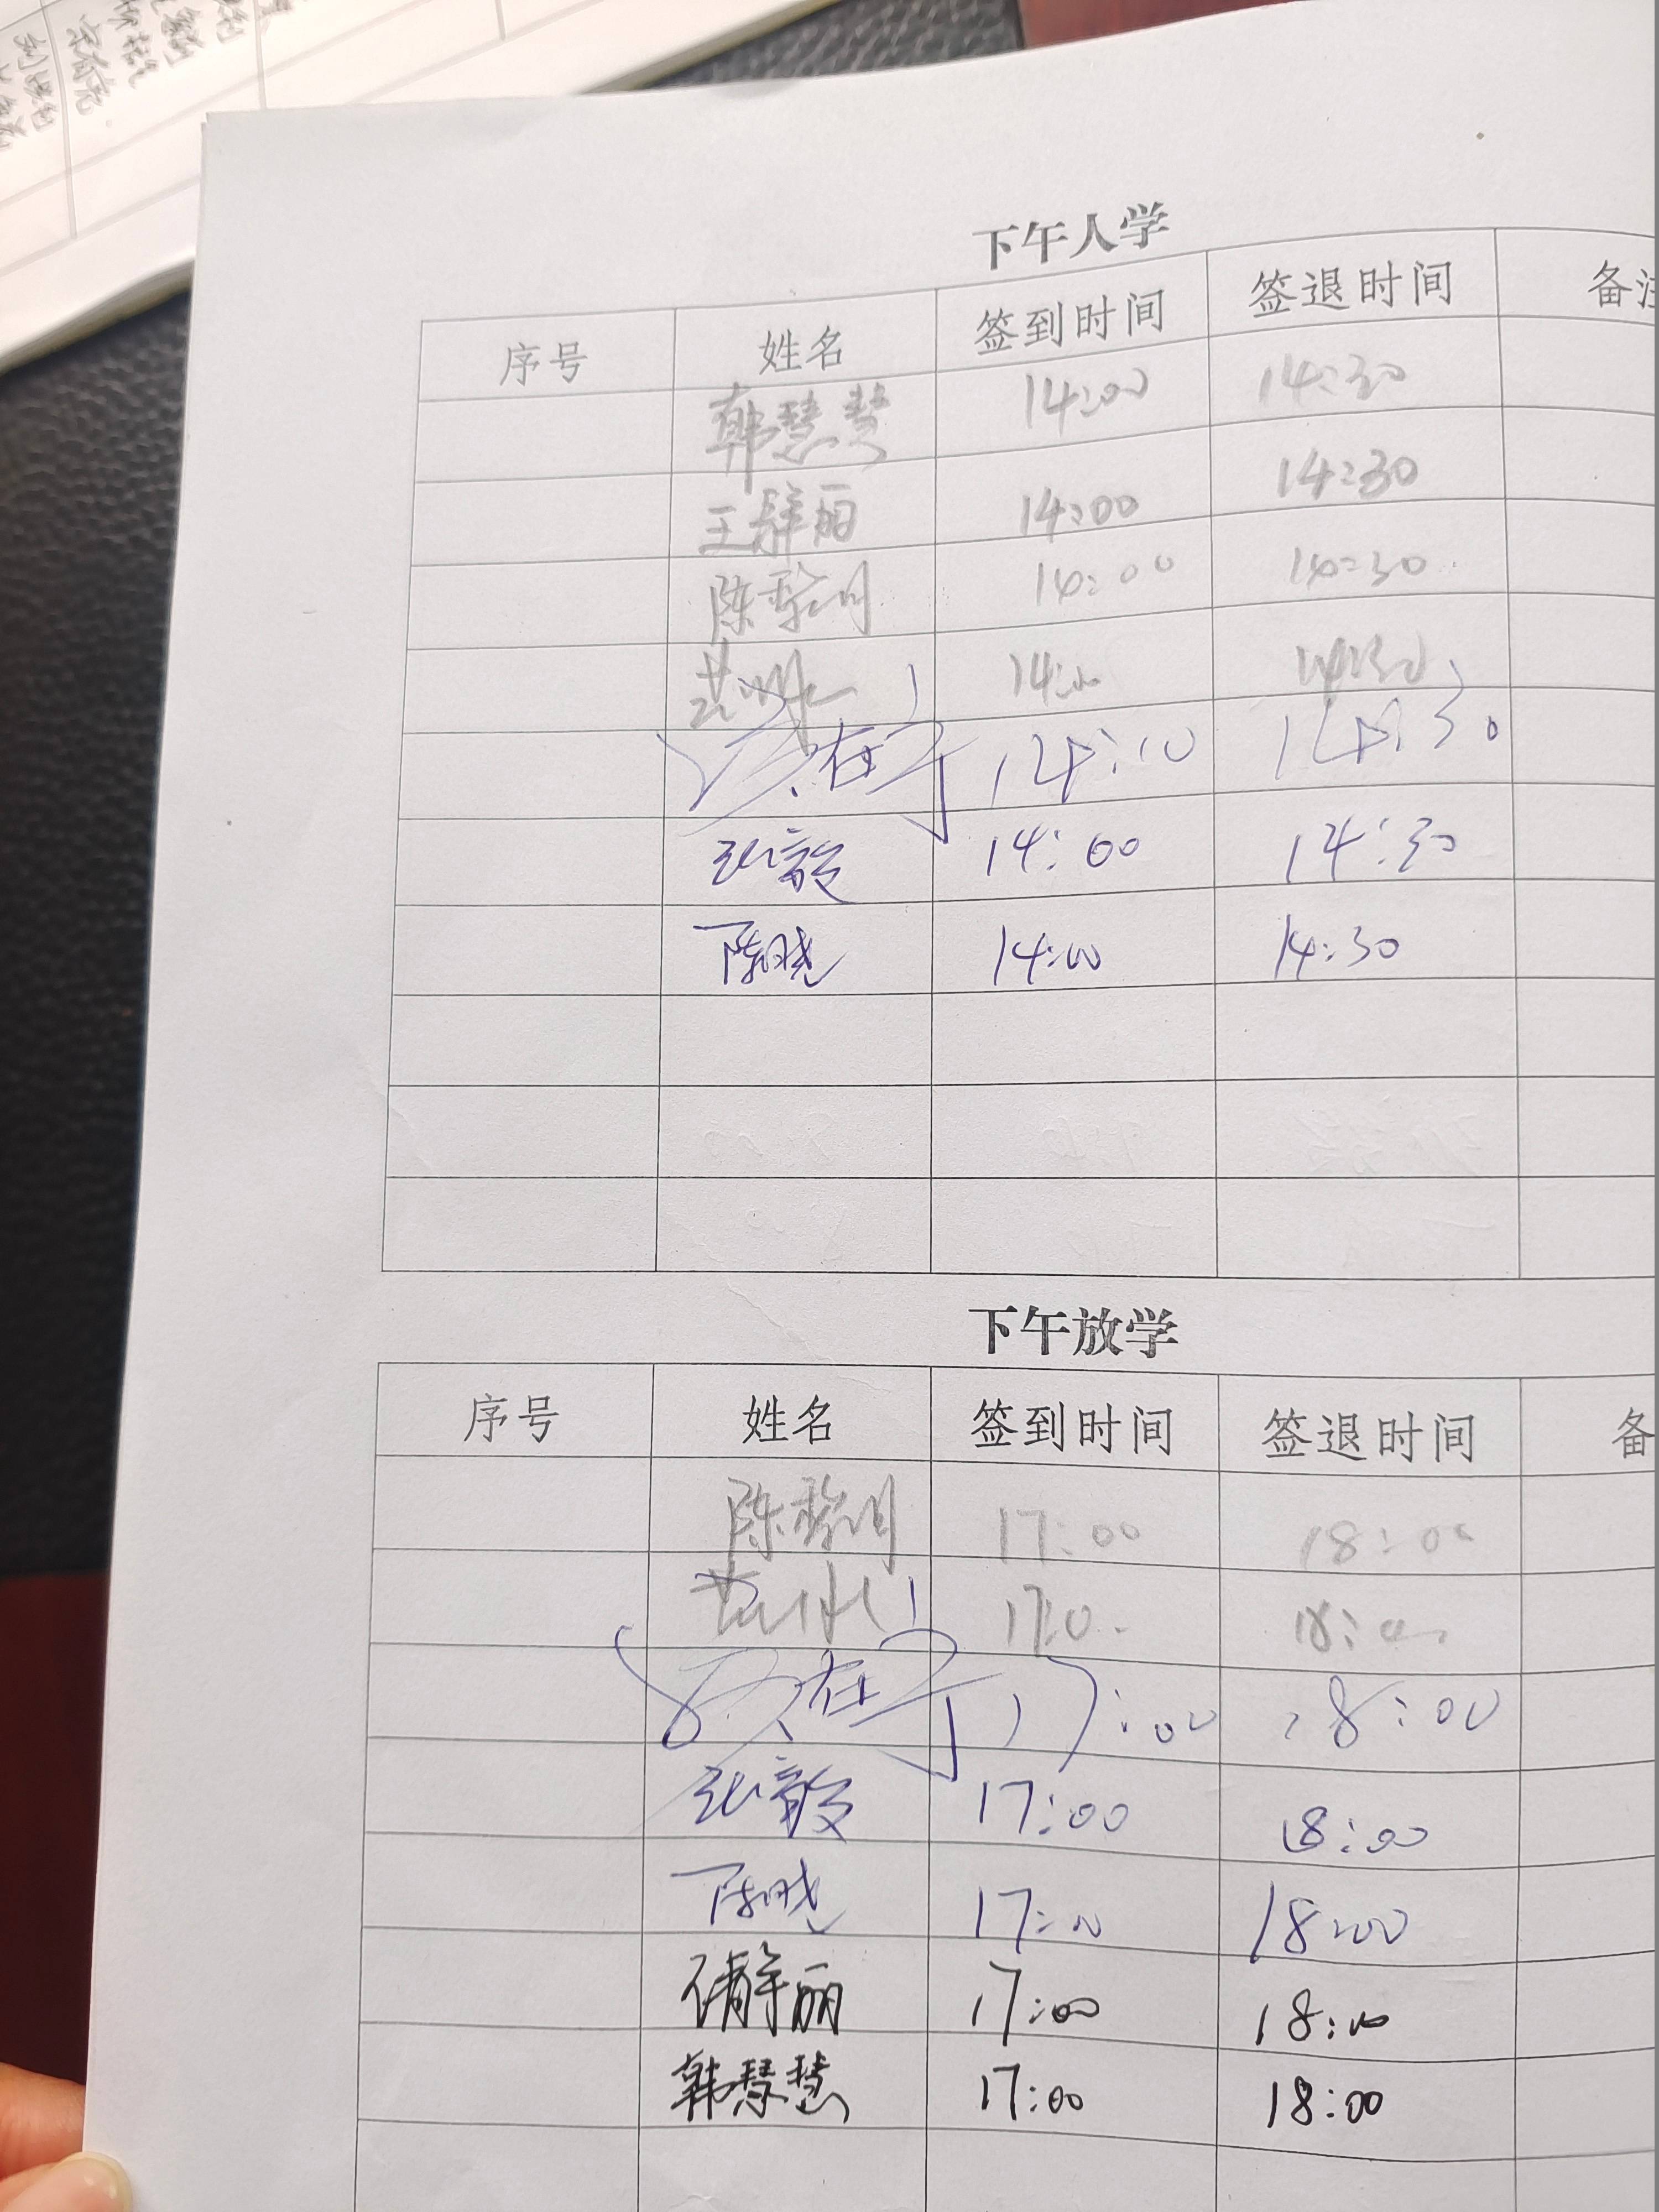 下午入学
序号 姓名 签到时间 签退时间 备注
韩慧慧 14:00 14:30
王静丽 14:00 14:30
陈黎明 14:00 14:30
14:00 14:30
在 14:10 14:30
张毅 14:00 14:30
陈晓 14:00 14:30
下午放学
序号 姓名 签到时间 签退时间 备
陈黎明 17:00 18:00
17:00 18:00
在 17:00 18:00
张毅 17:00 18:00
陈晓 17:00 18:00
静丽 17:00 18:00
韩慧慧 17:00 18:00